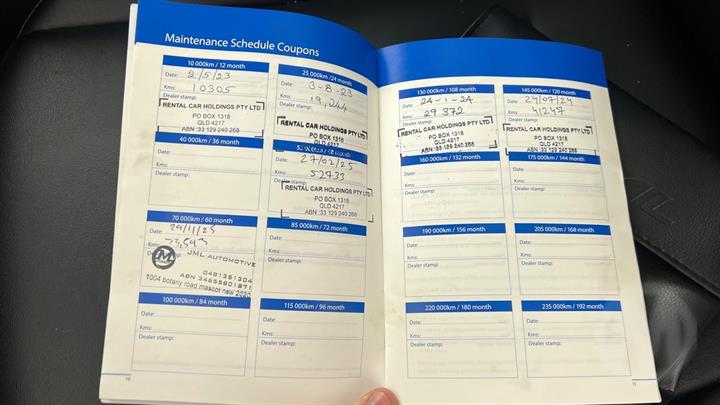 Maintenance Schedule Coupons
10 000km / 12 month
Date: 2/5/23
Kms: 10305
Dealer stamp:
RENTAL CAR HOLDINGS PTY LTD
PO BOX 1318
QLD 4217
ABN :33 129 240 268
25 000km /24 month
Date: 3-8-23
Kms: 19,244
Dealer stamp:
RENTAL CAR HOLDINGS PTY LTD
PO BOX 1318
QLD 4217
40 000km / 36 month
Date:
Kms:
Dealer stamp:
Date: 27/02/25
Kms: 52733
Dealer stamp:
RENTAL CAR HOLDINGS PTY LTD
PO BOX 1318
QLD 4217
ABN :33 129 240 268
70 000km / 60 month
Date: 29/11/25
Kms: 73,593
JML AUTOMOTIVE
ABN
1004 botany road mascot nsw 2020
85 000km / 72 month
Date:
Kms:
Dealer stamp:
100 000km / 84 month
Date:
Kms:
Dealer stamp:
115 000km / 96 month
Date:
Kms:
Dealer stamp:
10
130 000km / 108 month
Date: 24-1-24
Kms: 29 372
Dealer stamp:
RENTAL CAR HOLDINGS PTY LTD
PO BOX 1318
QLD 4217
ABN :33 129 240 268
145 000km / 120 month
Date: 24/07/24
Kms: 41247
Dealer stamp:
RENTAL CAR HOLDINGS PTY LTD
PO BOX 1318
QLD 4217
ABN :33 129 240 268
160 000km / 132 month
Date:
Kms:
Dealer stamp:
175 000km / 144 month
Date:
Kms:
Dealer stamp:
190 000km / 156 month
Date:
Kms:
Dealer stamp:
205 000km / 168 month
Date:
Kms:
Dealer stamp:
220 000km / 180 month
Date:
Kms:
Dealer stamp:
235 000km / 192 month
Date:
Kms:
Dealer stamp:
11